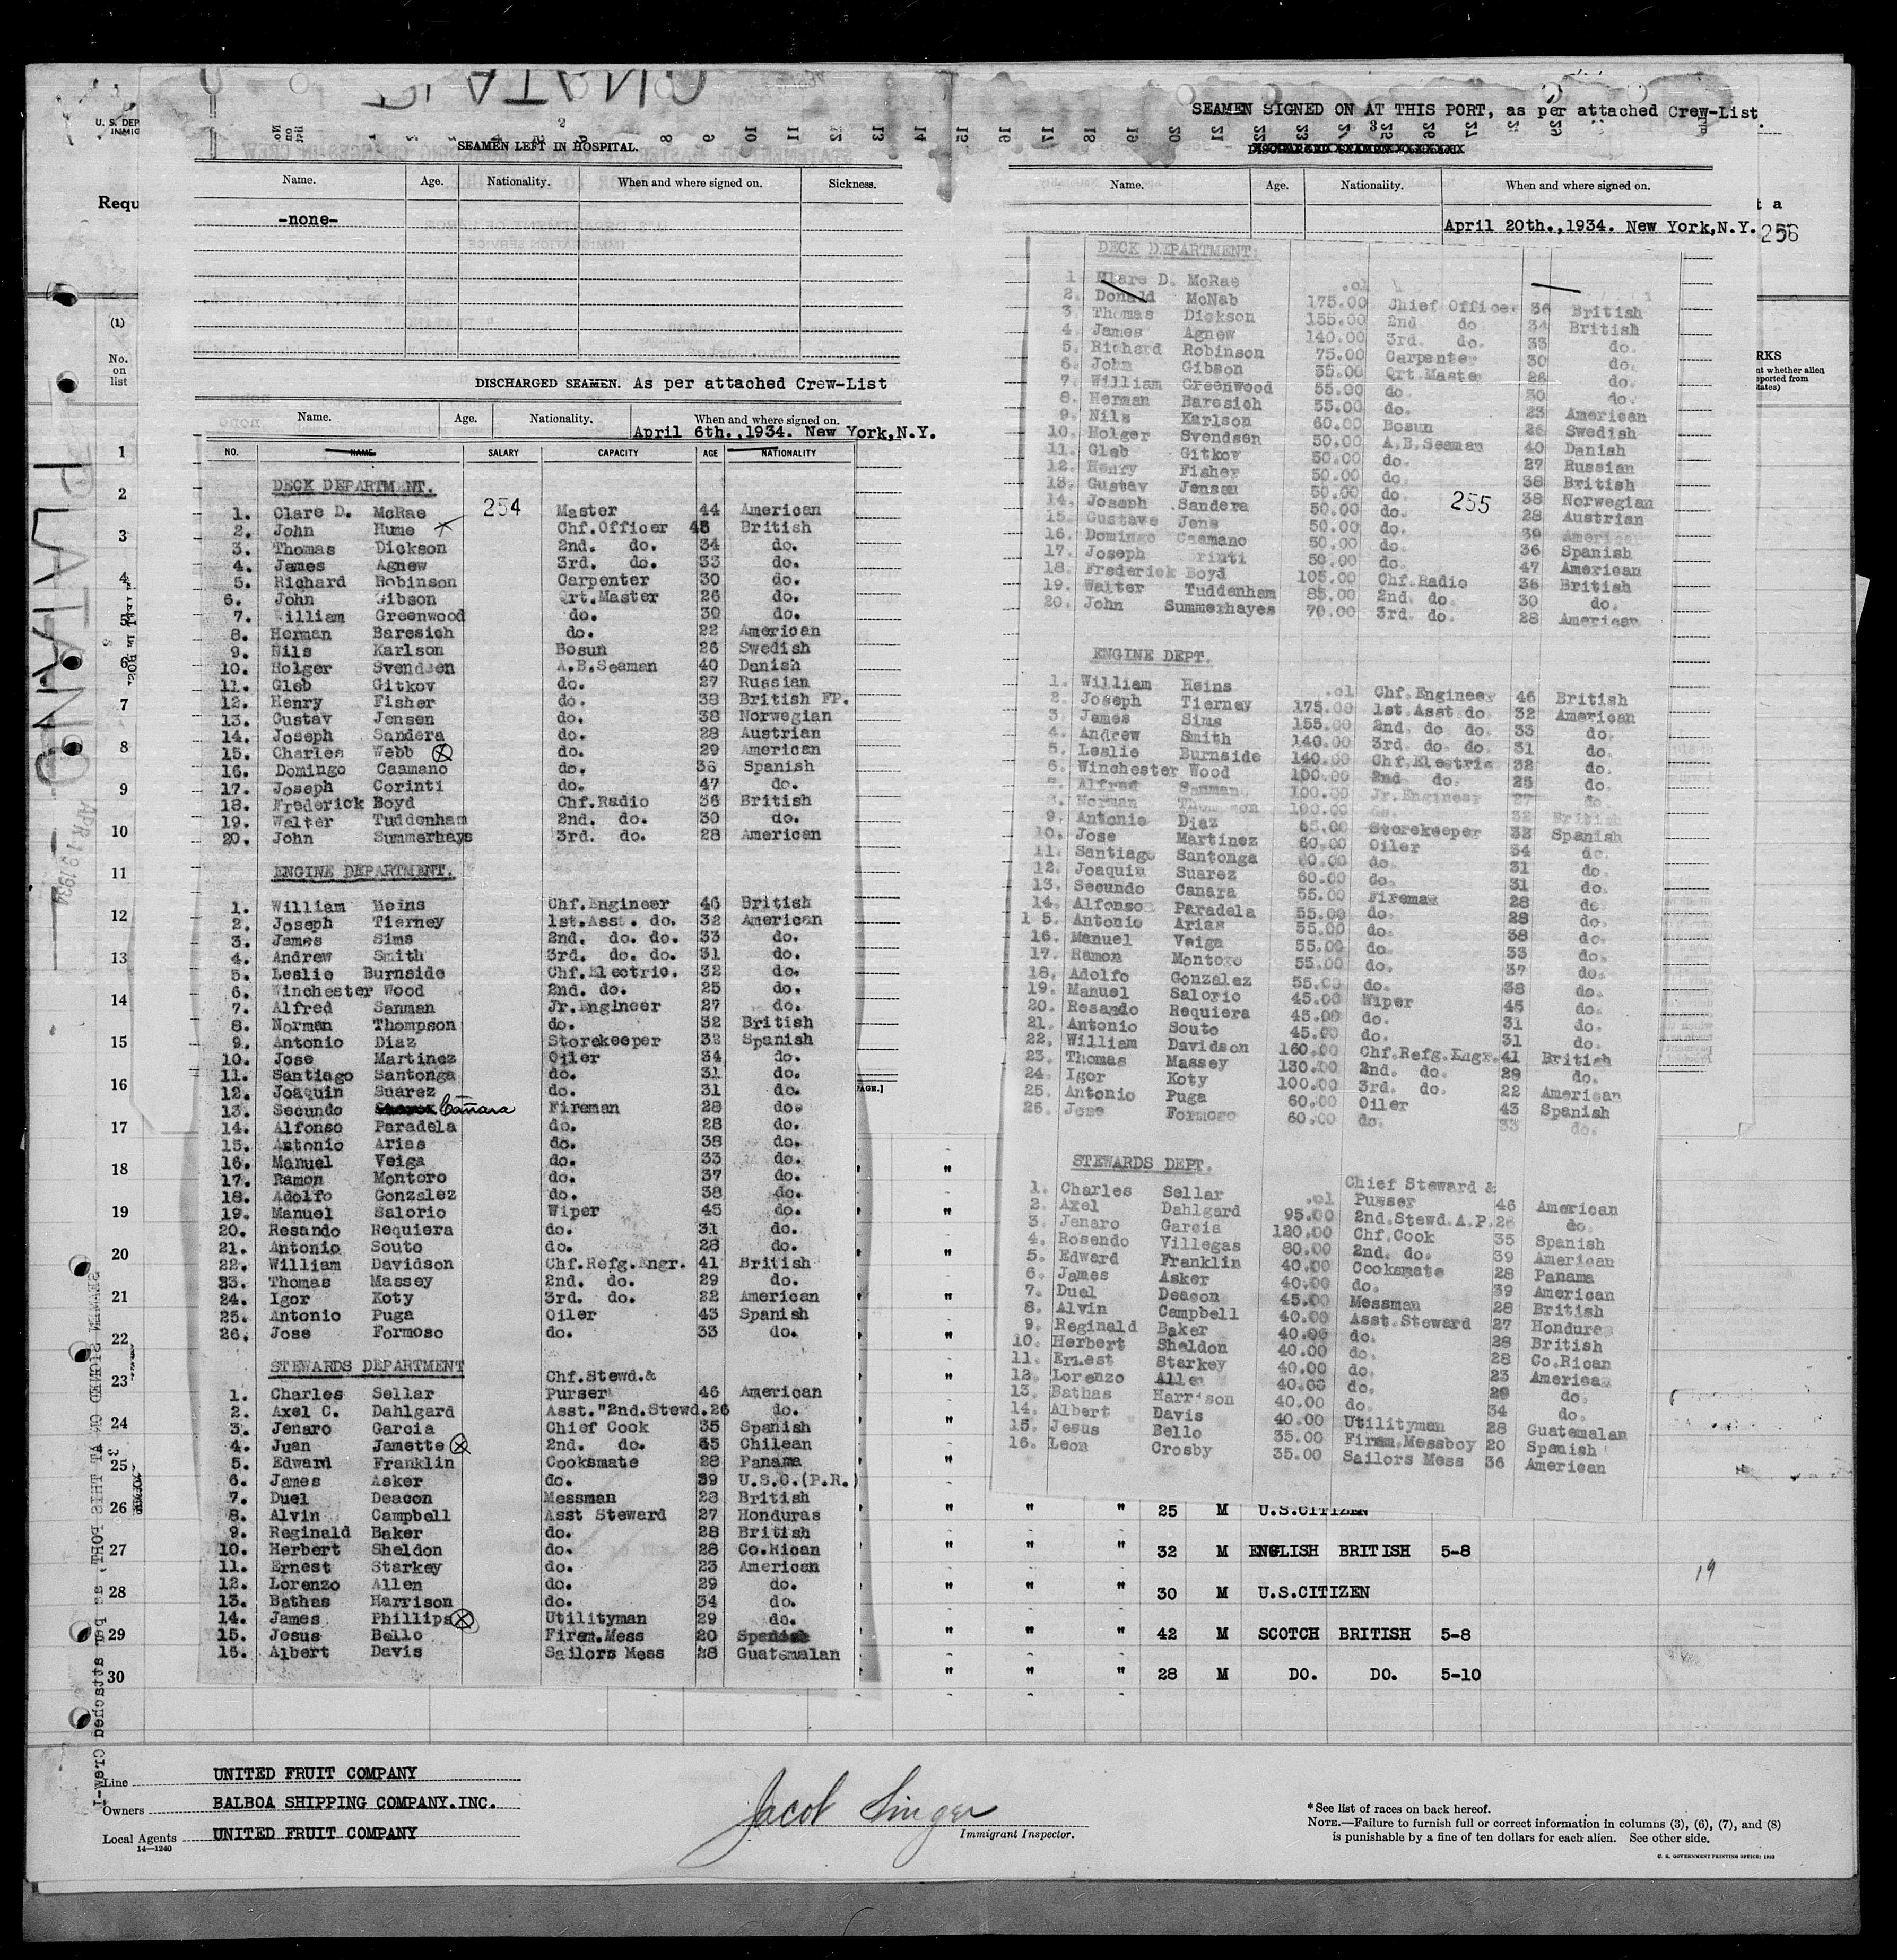 PLATANO
U. S. DEP
IMMIG
Requ
SEAMEN LEFT IN HOSPITAL.
Name. Age. Nationality. When and where signed on. Sickness.
-none-
DISCHARGED SEAMEN. As per attached Crew-List
Name. Age. Nationality. When and where signed on.
April 6th.,1934. New York,N.Y.
NO. NAME SALARY CAPACITY AGE NATIONALITY
DECK DEPARTMENT.
254
1. Clare D. McRae Master 44 American
2. John Hume Chf.Officer 45 British
3. Thomas Dickson 2nd. do. 34 do.
4. James Agnew 3rd. do. 33 do.
5. Richard Robinson Carpenter 30 do.
6. John Gibson Qrt.Master 26 do.
7. William Greenwood do. 30 do.
8. Herman Baresich do. 22 American
9. Nils Karlson Bosun 26 Swedish
10. Holger Svendsen A.B.Seaman 40 Danish
11. Gleb Gitkov do. 27 Russian
12. Henry Fisher do. 38 British FP.
13. Gustav Jensen do. 38 Norwegian
14. Joseph Sandera do. 28 Austrian
15. Charles Webb do. 29 American
16. Domingo Caamano do. 36 Spanish
17. Joseph Corinti do. 47 do.
18. Frederick Boyd Chf.Radio 36 British
19. Walter Tuddenham 2nd. do. 30 do.
20. John Summerhays 3rd. do. 28 American
ENGINE DEPARTMENT.
1. William Heins Chf.Engineer 46 British
2. Joseph Tierney 1st.Asst. do. 32 American
3. James Sims 2nd. do. do. 33 do.
4. Andrew Smith 3rd. do. do. 31 do.
5. Leslie Burnside Chf.Electric. 32 do.
6. Winchester Wood 2nd. do. 25 do.
7. Alfred Sanman Jr.Engineer 27 do.
8. Norman Thompson do. 32 British
9. Antonio Diaz Storekeeper 32 Spanish
10. Jose Martinez Oiler 34 do.
11. Santiago Santonga do. 31 do.
12. Joaquin Suarez do. 31 do.
13. Secundo Cañara Fireman 28 do.
14. Alfonso Paradela do. 28 do.
15. Antonio Arias do. 38 do.
16. Manuel Veiga do. 33 do.
17. Ramon Montoro do. 37 do.
18. Adolfo Gonzalez do. 38 do.
19. Manuel Salorio Wiper 45 do.
20. Resando Requiera do. 31 do.
21. Antonio Souto do. 28 do.
22. William Davidson Chf.Refg.Engr. 41 British
23. Thomas Massey 2nd. do. 29 do.
24. Igor Koty 3rd. do. 22 American
25. Antonio Puga Oiler 43 Spanish
26. Jose Formoso do. 33 do.
STEWARDS DEPARTMENT
Chf.Stewd.&
1. Charles Sellar Purser 46 American
2. Axel C. Dahlgard Asst."2nd.Stewd.26 do.
3. Jenaro Garcia Chief Cook 35 Spanish
4. Juan Jamette 2nd. do. 35 Chilean
5. Edward Franklin Cooksmate 28 Panama
6. James Asker do. 39 U.S.C.(P.R.)
7. Duel Deacon Messman 28 British
8. Alvin Campbell Asst Steward 27 Honduras
9. Reginald Baker do. 28 British
10. Herbert Sheldon do. 28 Co.Rican
11. Ernest Starkey do. 23 American
12. Lorenzo Allen do. 29 do.
13. Bathas Harrison do. 34 do.
14. James Phillips Utilityman 29 do.
15. Jesus Bello Firem.Mess 20 Spanish
16. Albert Davis Sailors Mess 28 Guatemalan
SEAMEN SIGNED ON AT THIS PORT, as per attached Crew-List
Name. Age. Nationality. When and where signed on.
April 20th.,1934. New York,N.Y.
256
DECK DEPARTMENT.
1 Clare D. McRae .01
2. Donald McNab 175.00 Chief Officer 36 British
3. Thomas Dickson 155.00 2nd. do 34 British
4. James Agnew 140.00 3rd. do. 33 do.
5. Richard Robinson 75.00 Carpenter 30 do.
6. John Gibson 55.00 Qrt.Master 26 do.
7. William Greenwood 55.00 do. 30 do.
8. Herman Baresich 55.00 do. 23 American
9. Nils Karlson 60.00 Bosun 26 Swedish
10. Holger Svendsen 50.00 A.B.Seaman 40 Danish
11. Gleb Gitkov 50.00 do. 27 Russian
12. Henry Fisher 50.00 do. 38 British
13. Gustav Jensen 50.00 do. 38 Norwegian
255
14. Joseph Sandera 50.00 do. 28 Austrian
15. Gustave Jens 50.00 do. 39 American
16. Domingo Caamano 50.00 do. 36 Spanish
17. Joseph orinti 50.00 do. 47 American
18. Frederick Boyd 105.00 Chf.Radio 36 British
19. Walter Tuddenham 85.00 2nd. do. 30 do.
20. John Summerhayes 70.00 3rd. do. 28 American
ENGINE DEPT.
1. William Heins .01 Chf.Engineer 46 British
2. Joseph Tierney 175.00 1st.Asst.do. 32 American
3. James Sims 155.00 2nd. do. do. 33 do.
4. Andrew Smith 140.00 3rd. do. do. 31 do.
5. Leslie Burnside 140.00 Chf.Electric. 32 do.
6. Winchester Wood 100.00 2nd do. 25 do.
7. Alfred Sanman 100.00 Jr.Engineer 27 do.
8. Norman Thompson 100.00 do. 32 British
9. Antonio Diaz 65.00 Storekeeper 32 Spanish
10. Jose Martinez 60.00 Oiler 34 do.
11. Santiago Santonga 60.00 do. 31 do.
12. Joaquin Suarez 60.00 do. 31 do.
13. Secundo Canara 55.00 Fireman 28 do.
14. Alfonso Paradela 55.00 do. 28 do.
1 5. Antonio Arias 55.00 do. 38 do.
16. Manuel Veiga 55.00 do. 33 do.
17. Ramon Montoro 55.00 do. 37 do.
18. Adolfo Gonzalez 55.00 do. 38 do.
19. Manuel Salorio 45.00 Wiper 45 do.
20. Resando Requiera 45.00 do. 31 do.
21. Antonio Souto 45.00 do. 31 do.
22. William Davidson 160.00 Chf.Refg.Engr. 41 British
23. Thomas Massey 130.00 2nd. do. 29 do.
24. Igor Koty 100.00 3rd. do. 22 American
25. Antonio Puga 60.00 Oiler 43 Spanish
26. Jose Formoso 60.00 do. 33 do.
STEWARDS DEPT.
Chief Steward &
1. Charles Sellar .01 Purser 46 American
2. Axel Dahlgard 95.00 2nd.Stewd.A.P.26 do.
3. Jenaro Garcia 120.00 Chf.Cook 35 Spanish
4. Rosendo Villegas 80.00 2nd. do. 39 American
5. Edward Franklin 40.00 Cooksmate 28 Panama
6. James Asker 40.00 do. 39 American
7. Duel Deacon 45.00 Messman 28 British
8. Alvin Campbell 40.00 Asst.Steward 27 Hondures
9. Reginald Baker 40.00 do. 28 British
10. Herbert Sheldon 40.00 do. 28 Co.Rican
11. Ernest Starkey 40.00 do. 23 American
12. Lorenzo Allen 40.00 do. 29 do.
13. Bathas Harrison 40.00 do. 34 do.
14. Albert Davis 40.00 Utilityman 28 Guatemalan
15. Jesus Bello 35.00 Firem.Messboy 20 Spanish
16. Leon Crosby 35.00 Sailors Mess 36 American
(1)
No.
on
list
1
2
3
4
5
6
7
8
9
10
11
12
13
14
15
16
17
18
19
20
21
22
23
24
25
26 " " " 25 M U.S.CITIZEN
27 " " " 32 M ENGLISH BRITISH 5-8
28 " " " 30 M U.S.CITIZEN
29 " " " 42 M SCOTCH BRITISH 5-8
30 " " " 28 M DO. DO. 5-10
19
PLATANO
APR 19 1934
SEAMEN SIGNED ON AT THIS PORT, as per attached Crew-L
Line UNITED FRUIT COMPANY
Owners BALBOA SHIPPING COMPANY.INC.
Local Agents UNITED FRUIT COMPANY
14—1240
Jacob Singer
Immigrant Inspector.
* See list of races on back hereof.
NOTE.—Failure to furnish full or correct information in columns (3), (6), (7), and (8)
is punishable by a fine of ten dollars for each alien. See other side.
U. S. GOVERNMENT PRINTING OFFICE: 1932